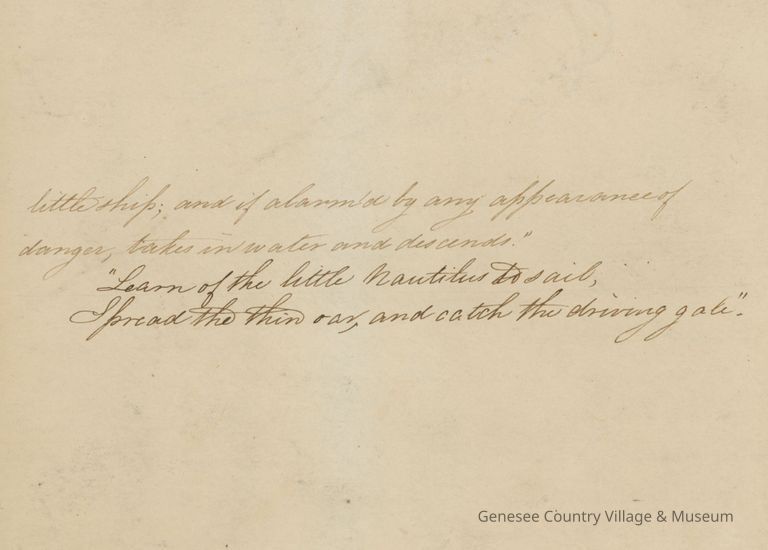 little ship; and if alarm'd by any appearance of
danger, takes in water and descends."
"Learn of the little Nautilus to sail,
Spread the thin oar, and catch the driving gale".
Genesee Country Village & Museum